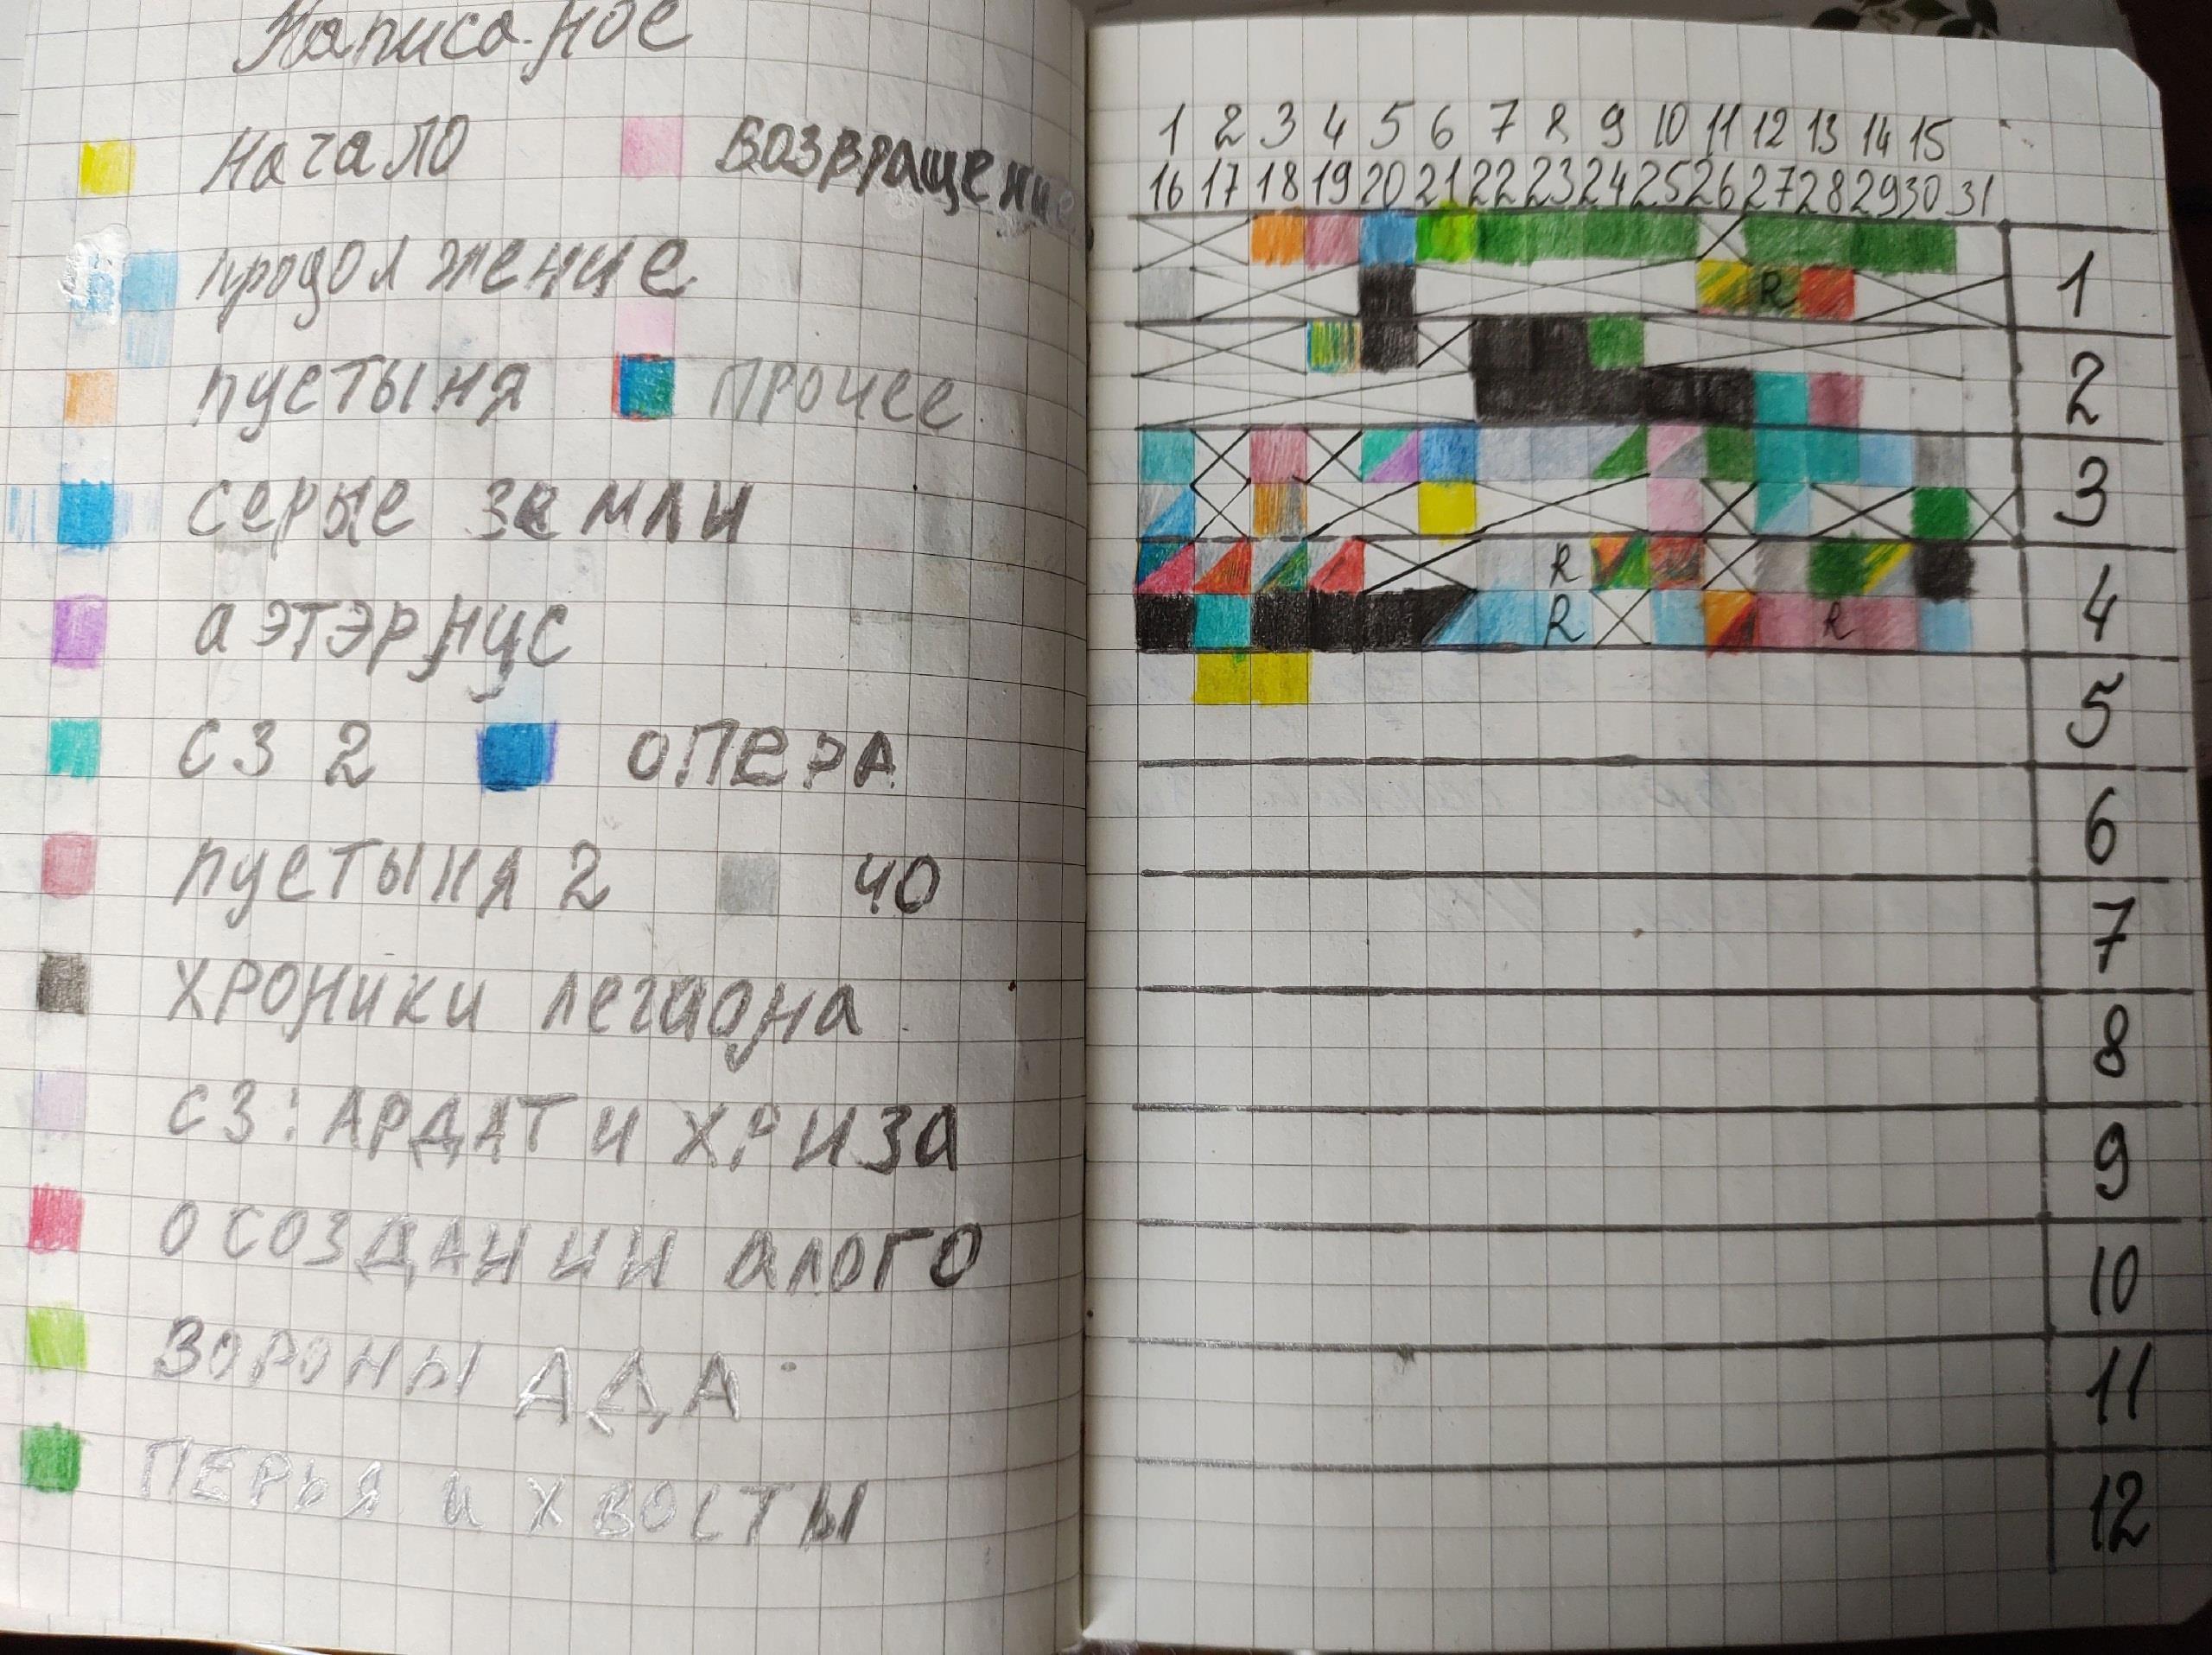 Написаное
начало возвращение
продолжение
пустыня прочее
серые земли
аэтэрнус
сз 2 опера
пустыня 2 чо
хроники легиона
сз: Ардат и хриза
о создании алого
вороны АДА
ПЕРЬЯ и хвосты
1 2 3 4 5 6 7 8 9 10 11 12 13 14 15
16 17 18 19 20 21 22 23 24 25 26 27 28 29 30 31
1
R
2
3
R
4
R R
5
6
7
8
9
10
11
12